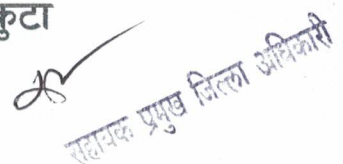 कुटा
सहायक प्रमुख जिल्ला अधिकारी